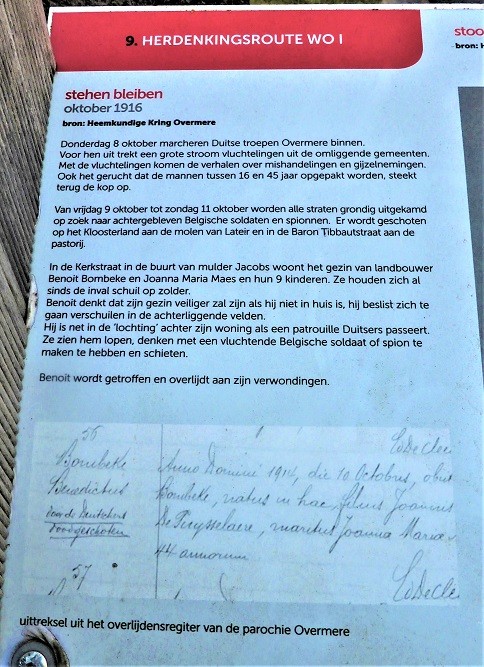 9. HERDENKINGSROUTE WO I
stoo
bron: H
stehen bleiben
oktober 1916
bron: Heemkundige Kring Overmere
Donderdag 8 oktober marcheren Duitse troepen Overmere binnen.
Voor hen uit trekt een grote stroom vluchtelingen uit de omliggende gemeenten.
Met de vluchtelingen komen de verhalen over mishandelingen en gijzelnemingen.
Ook het gerucht dat de mannen tussen 16 en 45 jaar opgepakt worden, steekt
terug de kop op.
Van vrijdag 9 oktober tot zondag 11 oktober worden alle straten grondig uitgekamd
op zoek naar achtergebleven Belgische soldaten en spionnen. Er wordt geschoten
op het Kloosterland aan de molen van Lateir en in de Baron Tibbautstraat aan de
pastorij.
In de Kerkstraat in de buurt van mulder Jacobs woont het gezin van landbouwer
Benoit Bombeke en Joanna Maria Maes en hun 9 kinderen. Ze houden zich al
sinds de inval schuil op zolder.
Benoit denkt dat zijn gezin veiliger zal zijn als hij niet in huis is, hij beslist zich te
gaan verschuilen in de achterliggende velden.
Hij is net in de 'lochting' achter zijn woning als een patrouille Duitsers passeert.
Ze zien hem lopen, denken met een vluchtende Belgische soldaat of spion te
maken te hebben en schieten.
Benoit wordt getroffen en overlijdt aan zijn verwondingen.
56
DeClee
Bombeke
Benedictus
door de Duitschers
doodgeschoten
Anno Domini 1914, die 10 Octobris, obiit
Bombeke, natus in hac, filius Joannis
De Puysselaere, maritus Joanna Maria
44 annorum
57
DeCle
uittreksel uit het overlijdensregiter van de parochie Overmere